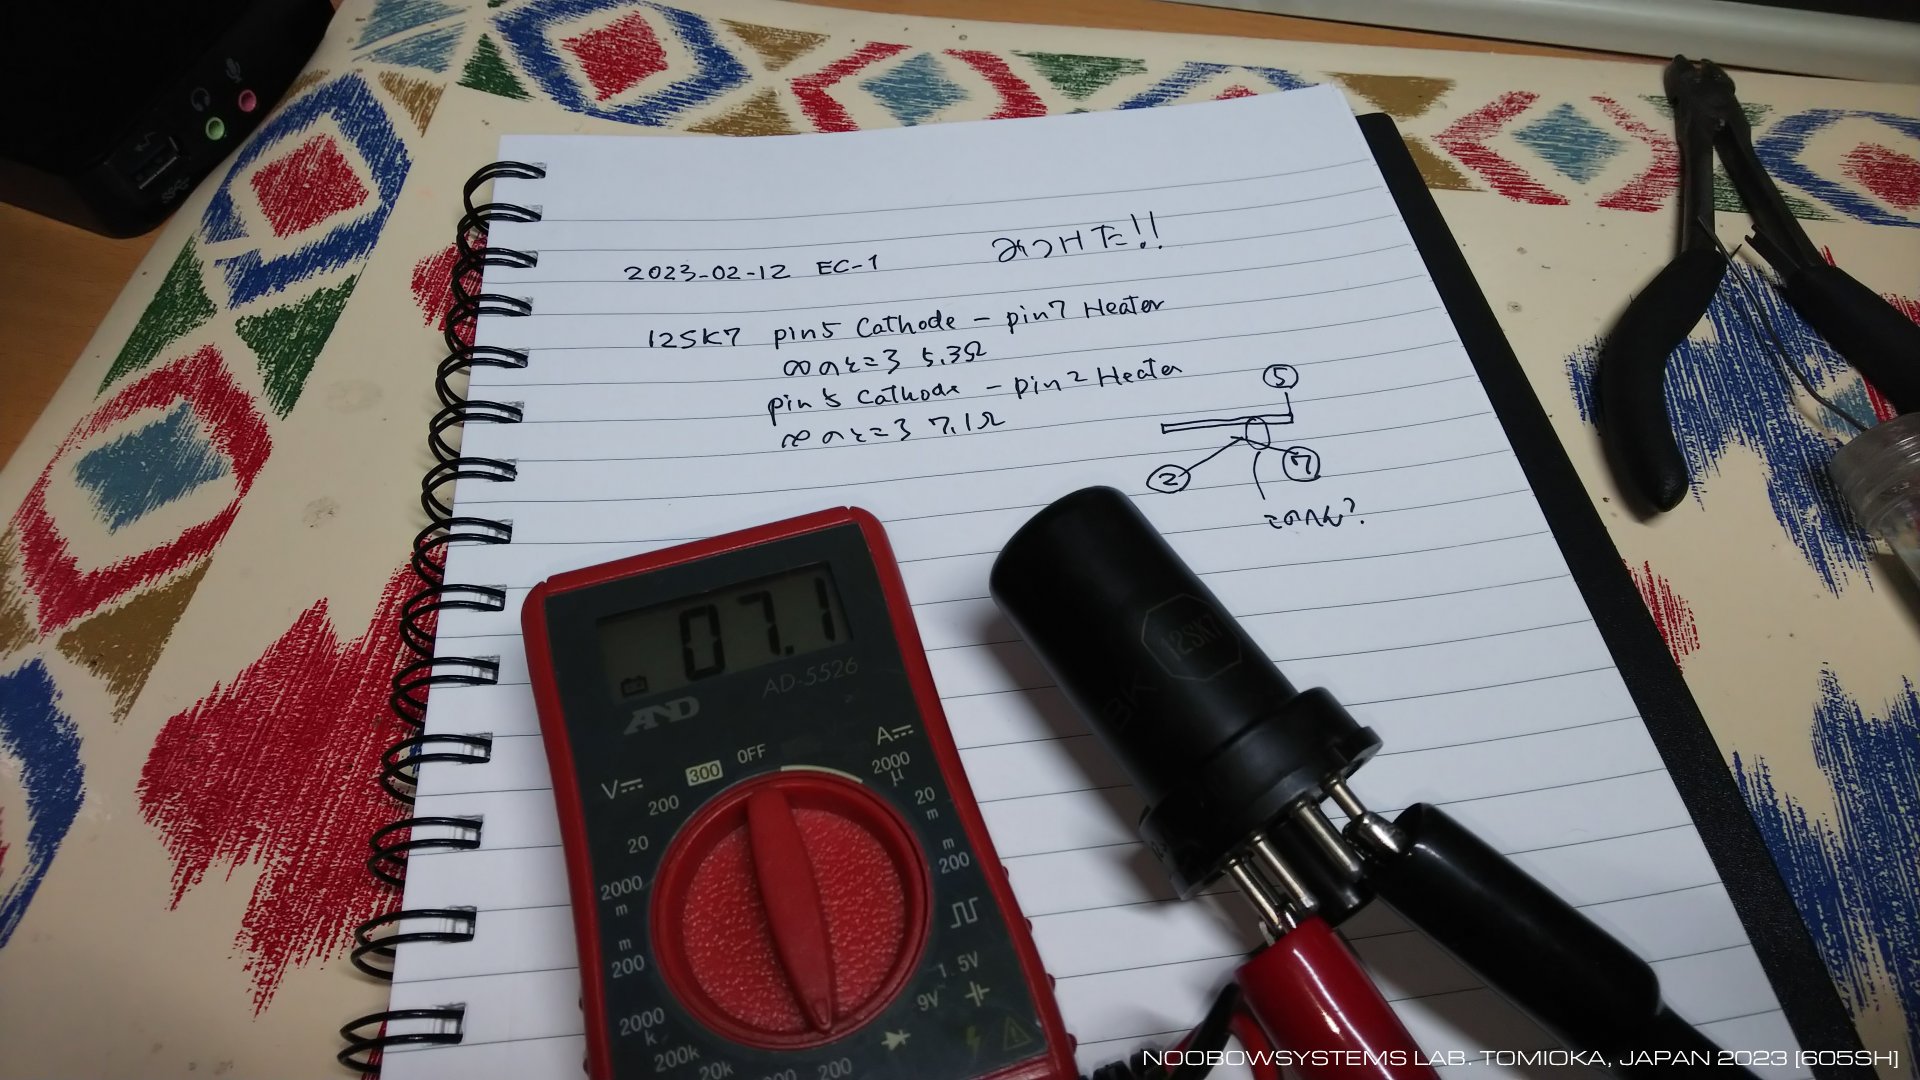 2023-02-12 EC-1 みつけた!!
12SK7 pin5 Cathode - pin7 Heater
∞のところ 5.3Ω
pin5 Cathode - pin2 Heater
∞のところ 7.1Ω
⑤
② ⑦
このへん?
07.1
AD-5526
AND
12SK7
OFF
300
V
A
200
20
2000
m
m
200
2000
k
200k
20k
200
2000
μ
20
m
m
200
1.5V
9V
NOOBOWSYSTEMS LAB. TOMIOKA, JAPAN 2023 [605SH]